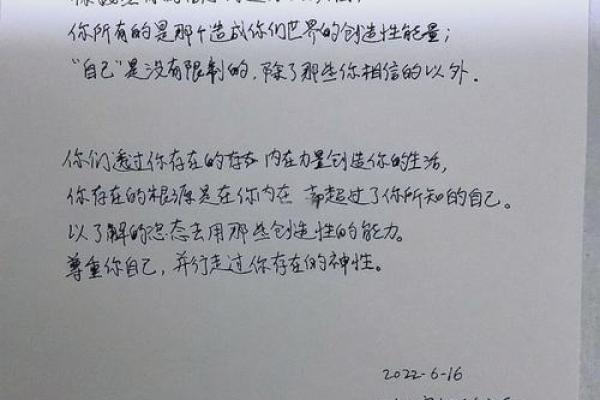 你所有的是那个造成你们世界的创造性能量；
“自己”是没有限制的，除了那些你相信的以外．
你们透过你存在的存在 内在力量创造你的生活，
你存在的根源是在你内在 而超过了你所知的自己。
以了解的态去用那些创造性的能力。
尊重你自己，并行走过你存在的神性。
2022-6-16